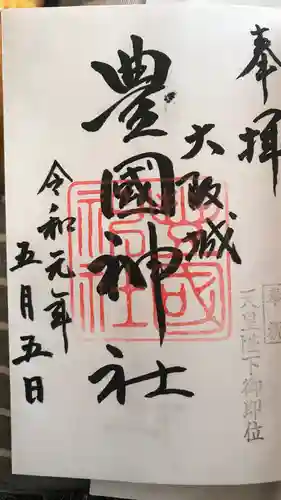 奉拝
大阪城
豊國神社
令和元年
五月五日
奉祝
天皇陛下御即位
豊國神社